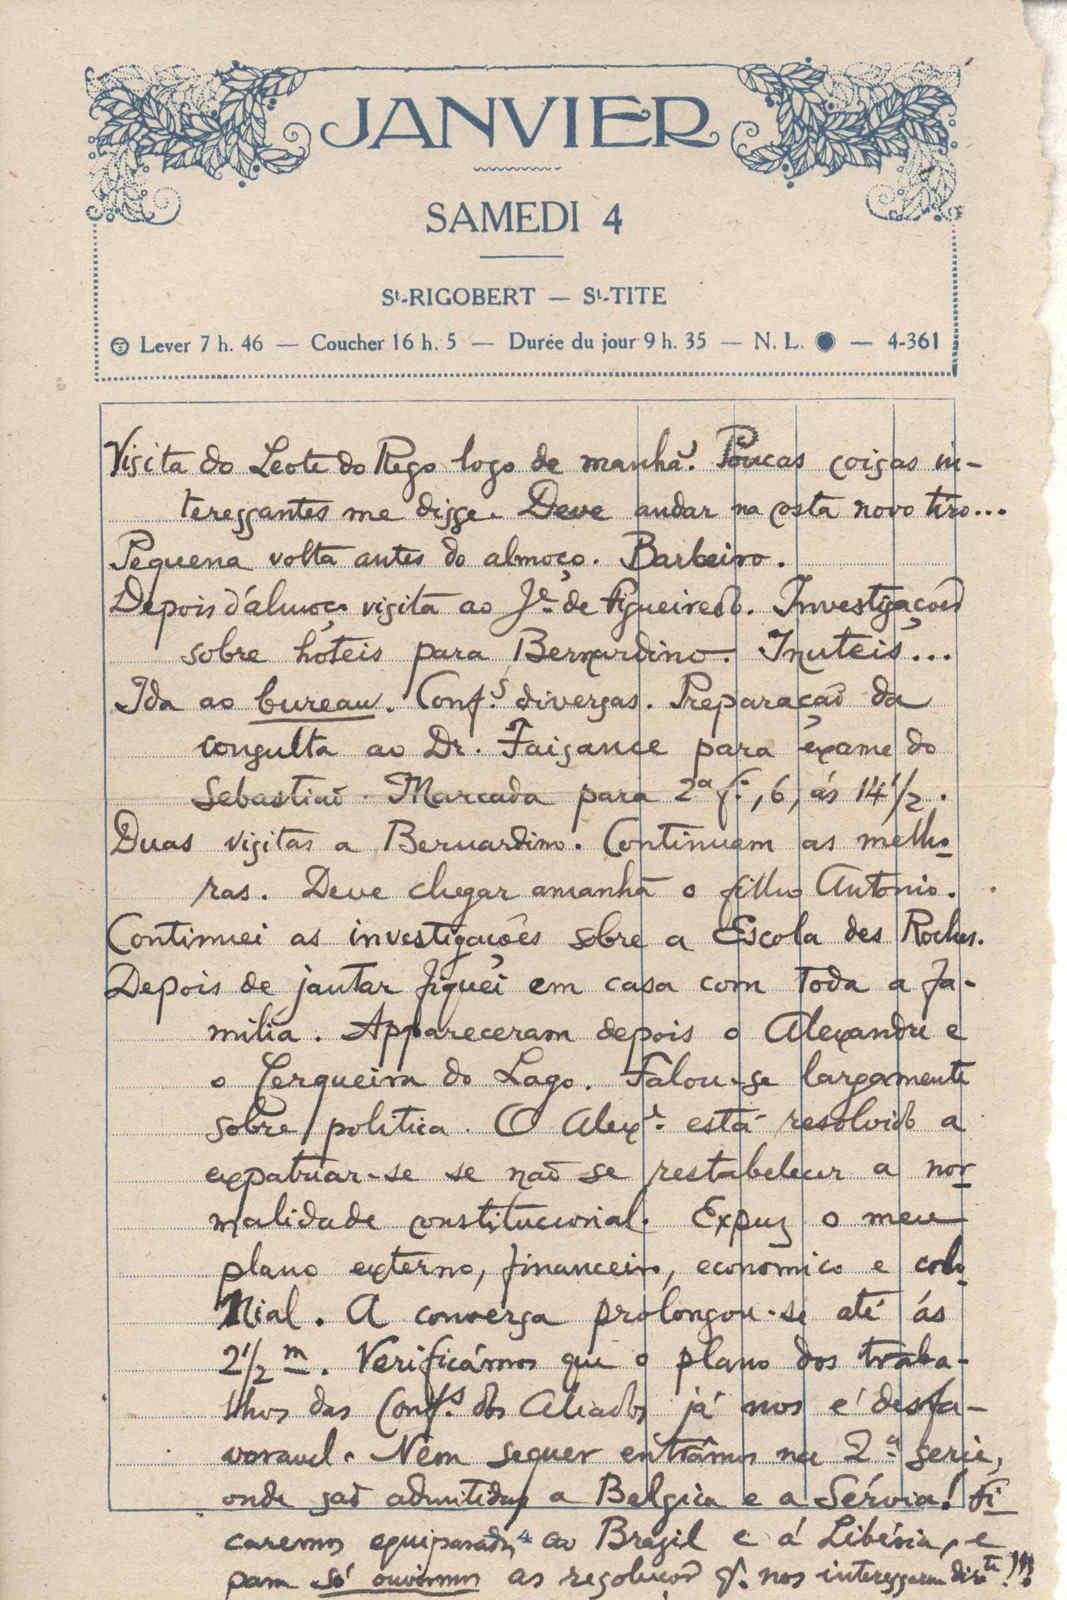 JANVIER
SAMEDI 4
St-RIGOBERT — St-TITE
Lever 7 h. 46 — Coucher 16 h. 5 — Durée du jour 9 h. 35 — N. L. ● — 4-361
Visita do Leote do Rego logo de manhã. Poucas coisas in-
teressantes me disse. Deve andar na costa novo tiro...
Pequena volta antes do almoço. Barbeiro.
Depois d'almoço visita ao Jé. de Figueiredo. Investigações
sobre hóteis para Bernardino. Inuteis...
Ida ao bureau. Conf.s diversas. Preparação da
consulta ao Dr. Faisance para exame do
Sebastião. Marcada para 2ª f.ª, 6, ás 14 1/2.
Duas visitas a Bernardino. Continuam as melho-
ras. Deve chegar amanhã o filho Antonio.
Continuei as investigações sobre a Escola des Roches.
Depois de jantar fiquei em casa com toda a fa-
milia. Appareceram depois o Alexandre e
o Cerqueira do Lago. Falou-se largamente
sobre politica. O Alex.e está resolvido a
expatriar-se se não se restabelecer a nor-
malidade constitucional. Expuz o meu
plano externo, financeiro, economico e colo-
nial. A conversa prolongou-se até ás
2 1/2 m. Verificámos que o plano dos traba-
lhos das Conf.s dos Aliados já nos é desfa-
voravel. Nem sequer entrâmos na 2ª serie,
onde são admitidas a Belgica e a Sérvia! Fi-
caremos equiparados ao Brazil e á Libéria, e
para só ouvirmos as resoluções q. nos interessarem dir.te!!!